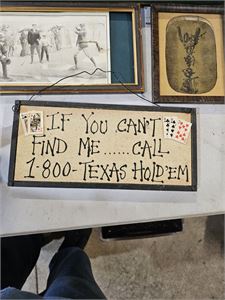 IF YOU CAN'T
FIND ME...... CALL
1-800-TEXAS HOLD'EM